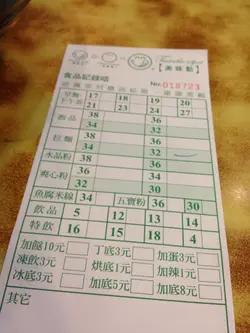 美味點
食品記錄咭
No. 018723
早餐 17 18 19 20
下午茶 21 23 24 27
38 36
34 32
拉麵 38 36
34 32
米晶粉 38 36
34 32
爽心粉 38 36
34 32
魚腐米線 34 五寶粉 36 30
飲品 5 12 13 14
特飲 16 15 18 4
加餸10元 丁底3元 加蛋3元
凍飲3元 烘底1元 加辣1元
冰底3元 加底5元 加底8元
其它